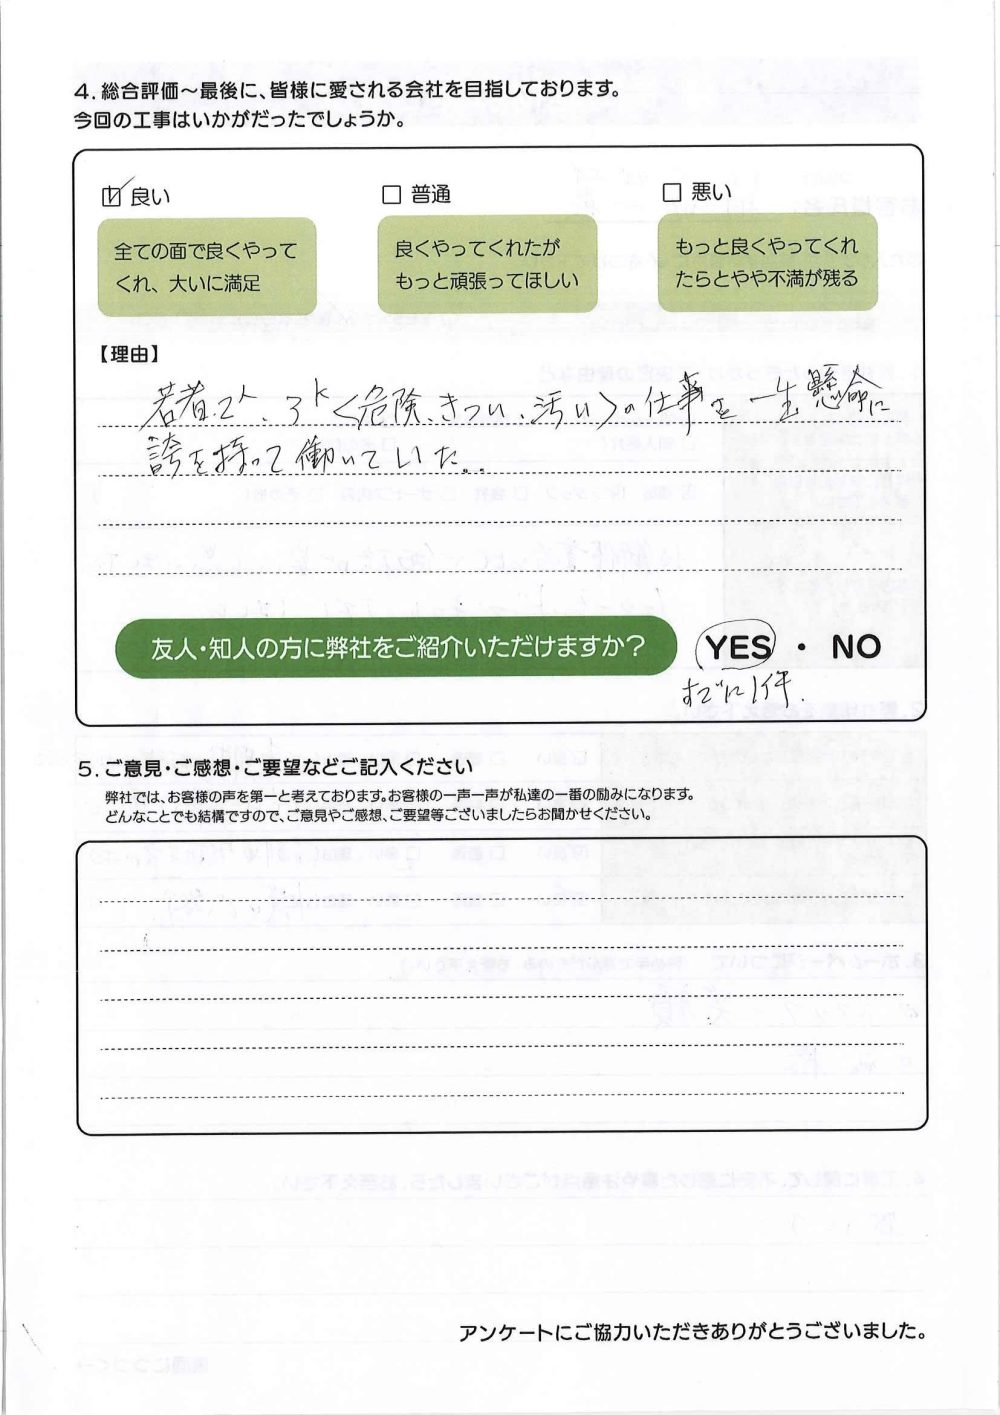 4.総合評価～最後に、皆様に愛される会社を目指しております。
今回の工事はいかがだったでしょうか。
良い
普通
悪い
全ての面で良くやって
くれ、大いに満足
良くやってくれたが
もっと頑張ってほしい
もっと良くやってくれ
たらとやや不満が残る
【理由】
若者2人、3K〈危険、きつい、汚い〉の仕事を一生懸命に
誇を持って働いていた。
友人・知人の方に弊社をご紹介いただけますか？
YES・NO
すでに1件.
5.ご意見・ご感想・ご要望などご記入ください
弊社では、お客様の声を第一と考えております。お客様の一声一声が私達の一番の励みになります。
どんなことでも結構ですので、ご意見やご感想、ご要望等ございましたらお聞かせください。
アンケートにご協力いただきありがとうございました。